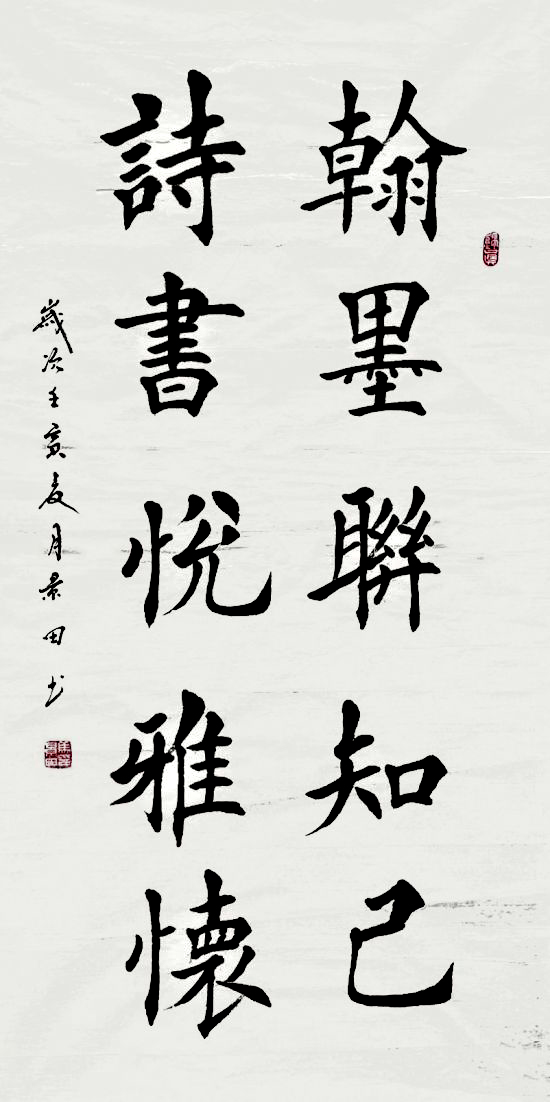 翰墨聯知己
詩書悦雅懷
歲次壬寅夏月景田书